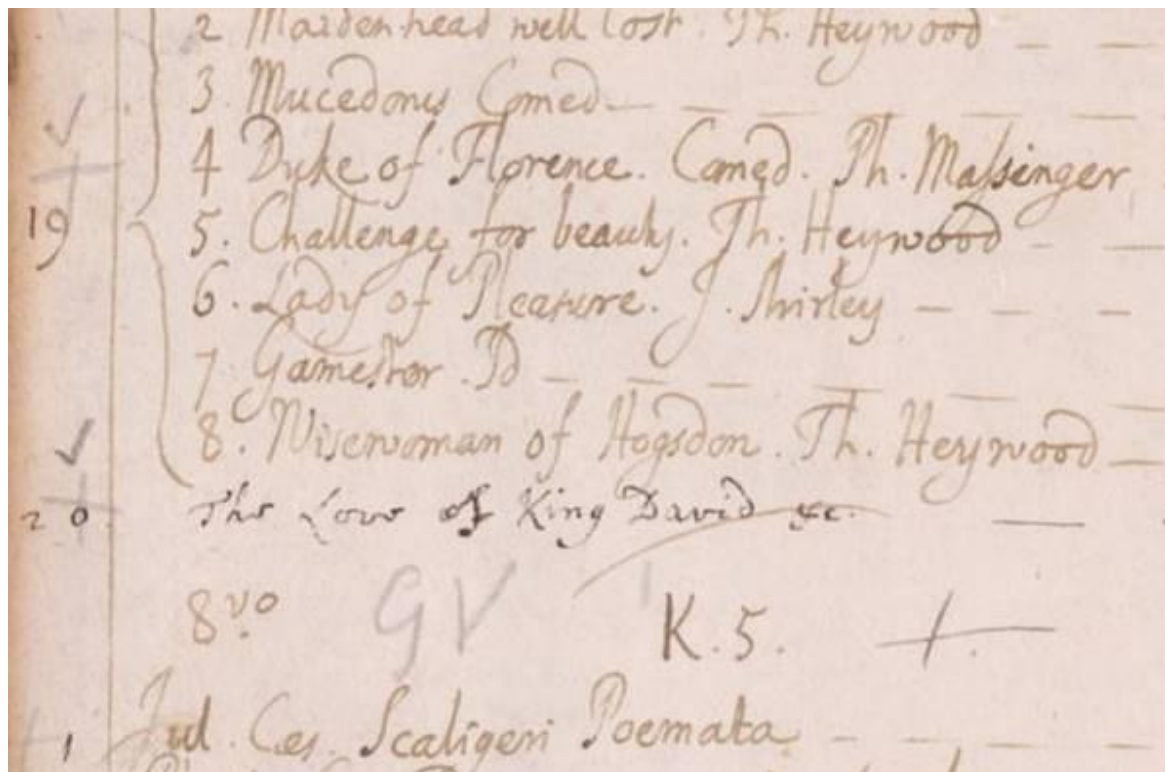 2 Maidenhead well lost. Th. Heywood — —
3. Mucedorus Comed — — — — —
4 Duke of Florence. Comed. Ph. Massinger
19 5. Challenge for beauty. Th. Heywood - —
6. Lady of Pleasure. J. Shirley — — —
7 Gamester. Id — — — — — —
8. Wisewoman of Hogsdon. Th. Heywood —
20 The Love of King David &c. —
8vo. GV K.5. +.
1 Jul. Cæs. Scaligeri Poemata - — — — —